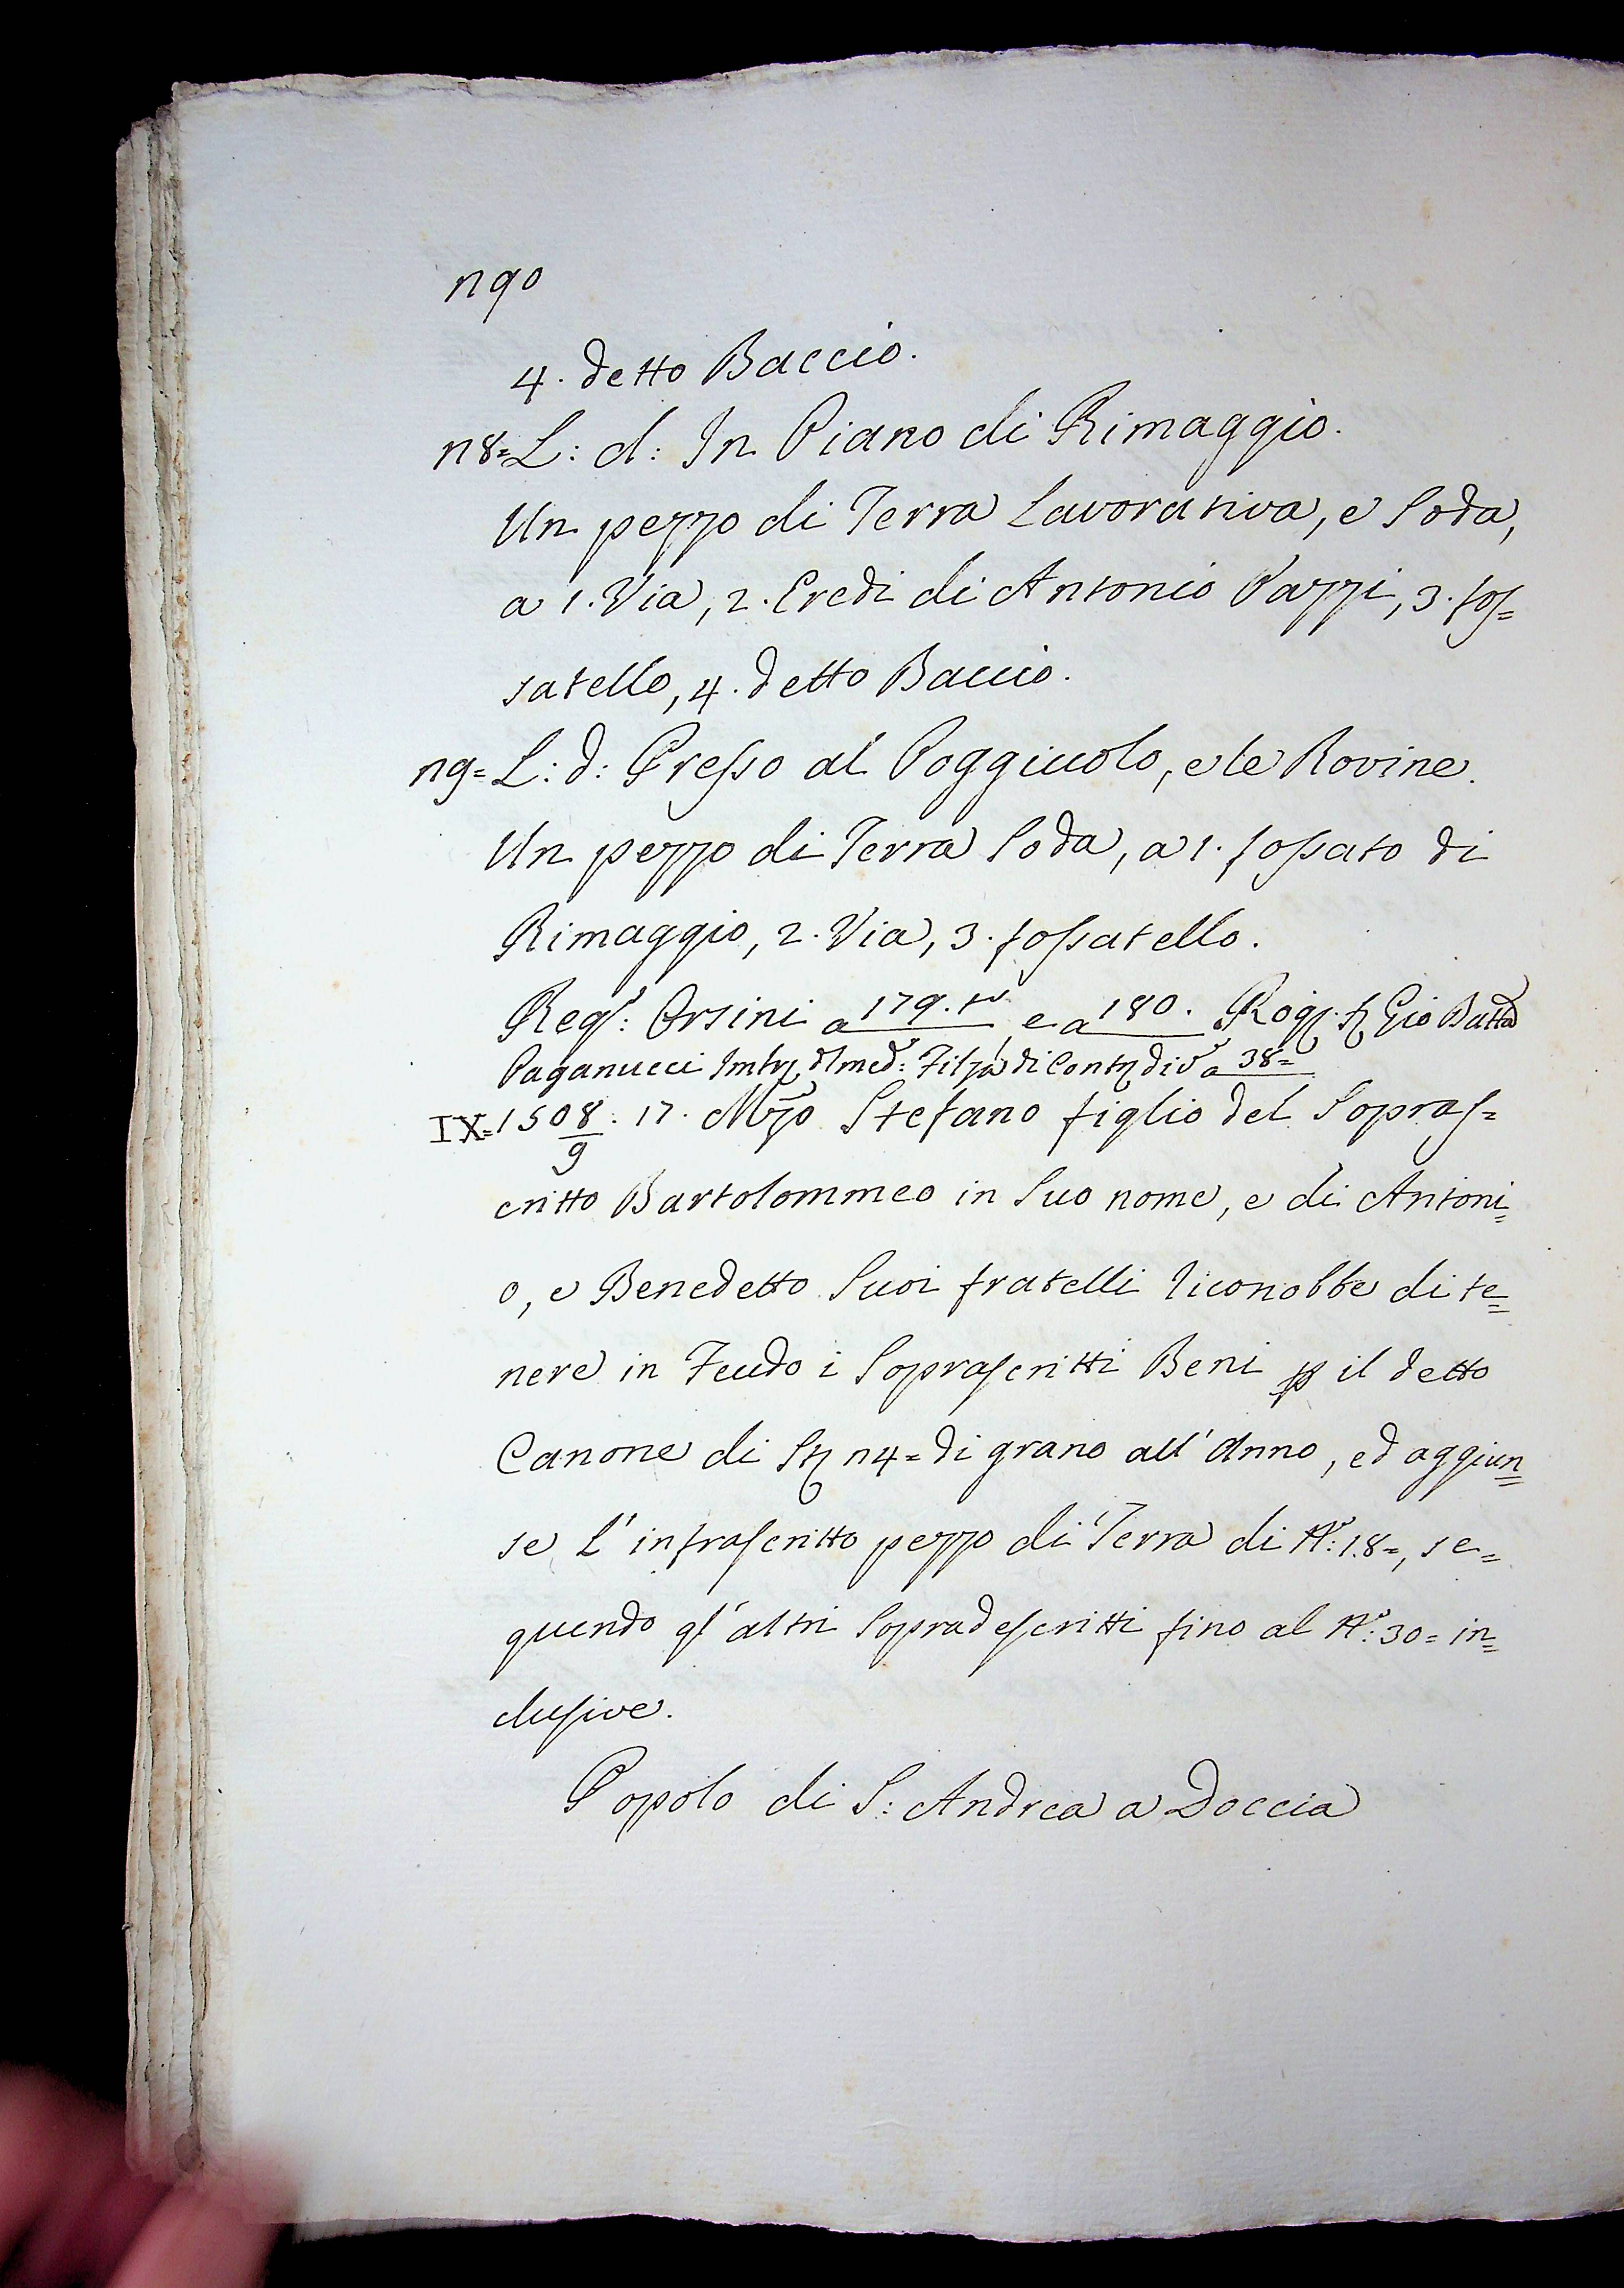 190
4. detto Baccio.
18= L: d: In Piano di Rimaggio.
Un pezzo di Terra Lavorativa, e Soda,
a 1. Via, 2. Eredi di Antonio Pazzi, 3. fos=
satello, 4. detto Baccio.
19= L: d: Presso al Poggiuolo, e le Rovine.
Un pezzo di Terra Soda, a 1. fossato di
Rimaggio, 2. Via, 3. fossatello.
Regº: Orsini a 179. tº e a 180. Rog. Gio Batta
Paganucci Filza di a 38=
IX= 1508/9. 17. Mzo Stefano figlio del Sopras=
critto Bartolommeo in Suo nome, e di Antoni=
o, e Benedetto Suoi fratelli riconobbe di te=
nere in Feudo i Soprascritti Beni p il detto
Canone di St 14= di grano all' Anno, ed aggiun=
se L' infrascritto pezzo di Terra di Nº: 18=, se=
guendo gl' altri Sopradescritti fino al Nº: 30= in=
clusive.
Popolo di S: Andrea a Doccia